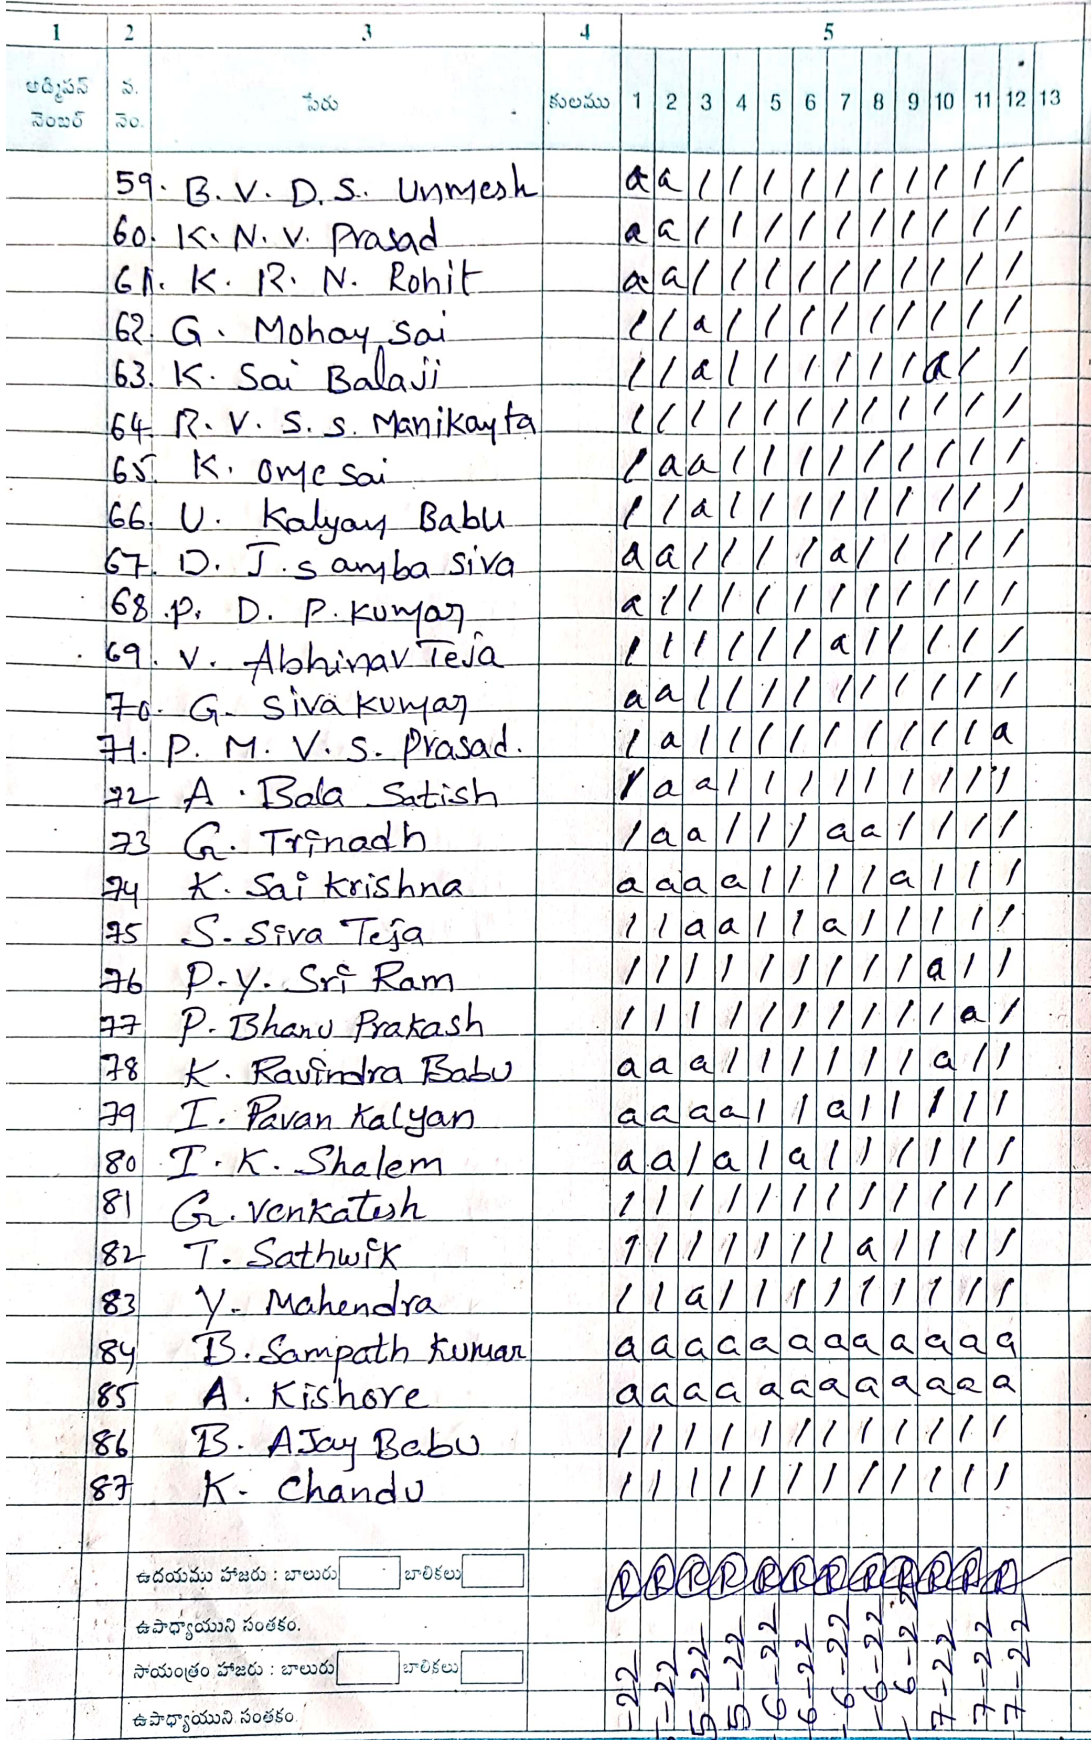 1 2 3 4 5
అడ్మిషన్ నెంబర్ న. నెం. పేరు కులము 1 2 3 4 5 6 7 8 9 10 11 12 13
59. B. V. D. S. Unmesh a a / / / / / / / / / /
60. K. N. V. Prasad a a / / / / / / / / / /
61. K. R. N. Rohit a a / / / / / / / / / /
62. G. Mohan Sai / / a / / / / / / / / /
63. K. Sai Balaji / / a / / / / / / a / /
64. R. V. S. S. Manikanta / / / / / / / / / / / /
65. K. Ome Sai / a a / / / / / / / / /
66. U. Kalyan Babu / / a / / / / / / / / /
67. D. J. Samba Siva a a / / / / a / / / / /
68. P. D. P. Kumar a / / / / / / / / / / /
69. V. Abhinav Teja / / / / / / a / / / / /
70. G. Siva Kumar a a / / / / / / / / / /
71. P. M. V. S. Prasad. / a / / / / / / / / / a
72 A. Bala Satish / a a / / / / / / / / /
73 G. Trinadh / a a / / / a a / / / /
74 K. Sai Krishna a a a a / / / / a / / /
75 S. Siva Teja / / a a / / a / / / / /
76 P. Y. Sri Ram / / / / / / / / / a / /
77 P. Bhanu Prakash / / / / / / / / / / a /
78 K. Ravindra Babu a a a / / / / / / a / /
79 I. Pavan Kalyan a a a a / / a / / / / /
80 I. K. Shalem a a / a / a / / / / / /
81 G. Venkatesh / / / / / / / / / / / /
82 T. Sathwik / / / / / / / a / / / /
83 Y. Mahendra / / a / / / / / / / / /
84 B. Sampath Kumar a a a a a a a a a a a a
85 A. Kishore a a a a a a a a a a a a
86 B. AJay Babu / / / / / / / / / / / /
87 K. Chandu / / / / / / / / / / / /
ఉదయము హాజరు : బాలురు బాలికలు
ఉపాధ్యాయుని సంతకం.
సాయంత్రం హాజరు : బాలురు బాలికలు
ఉపాధ్యాయుని సంతకం.
-22 -22 5-22 5-22 6-22 6-22 -6-22 -6-22 -6-22 7-22 7-22 7-22